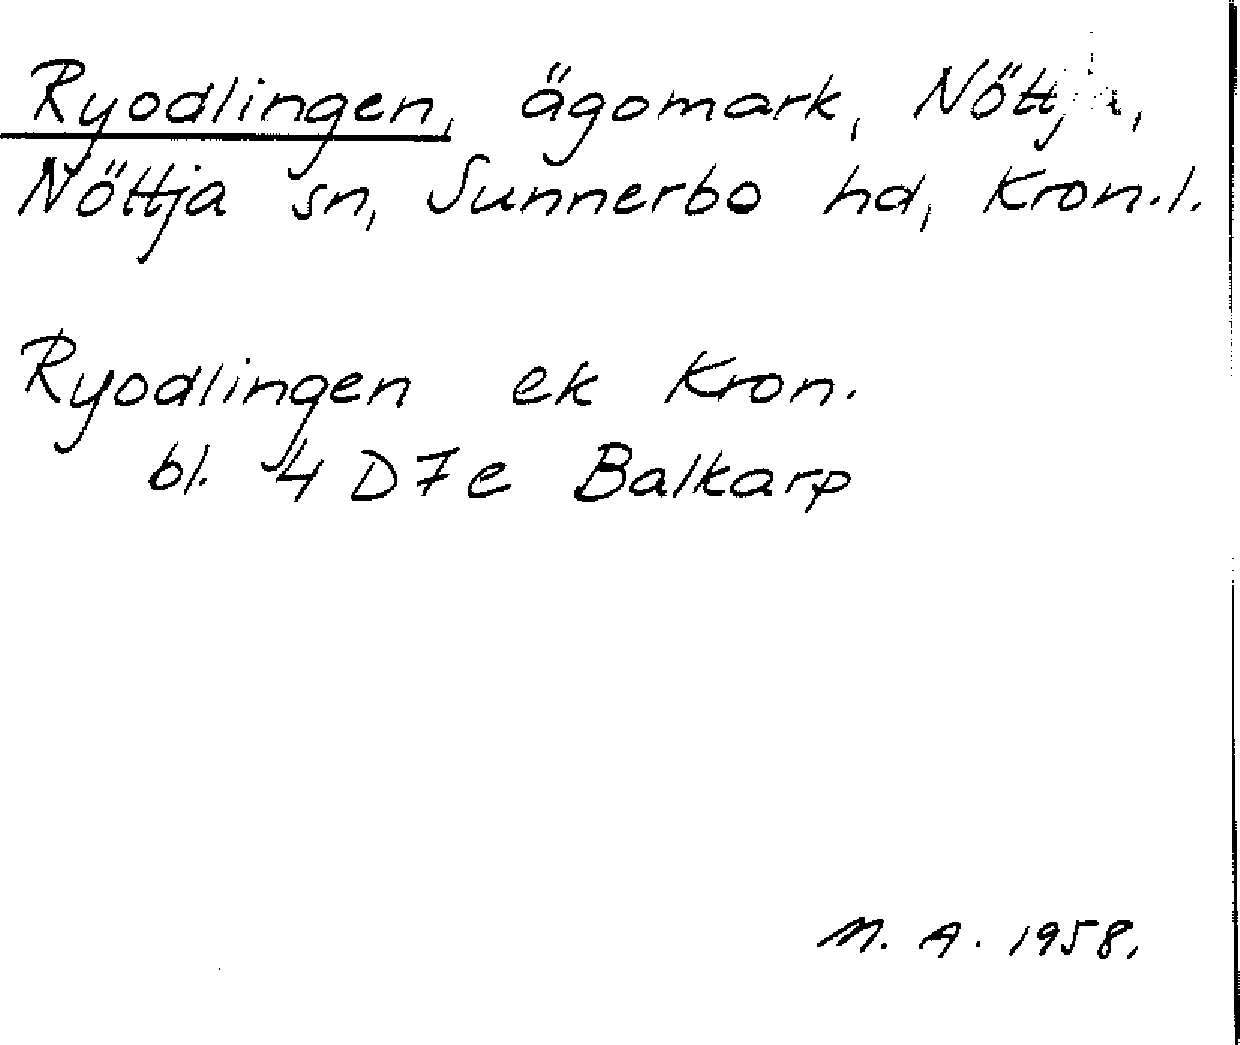 Ryodlingen, ägomark, Nöttja,
Nöttja sn, Sunnerbo hd, Kron.l.
Ryodlingen ek Kron.
bl. 4 D7e Balkarp
M. A. 1958.